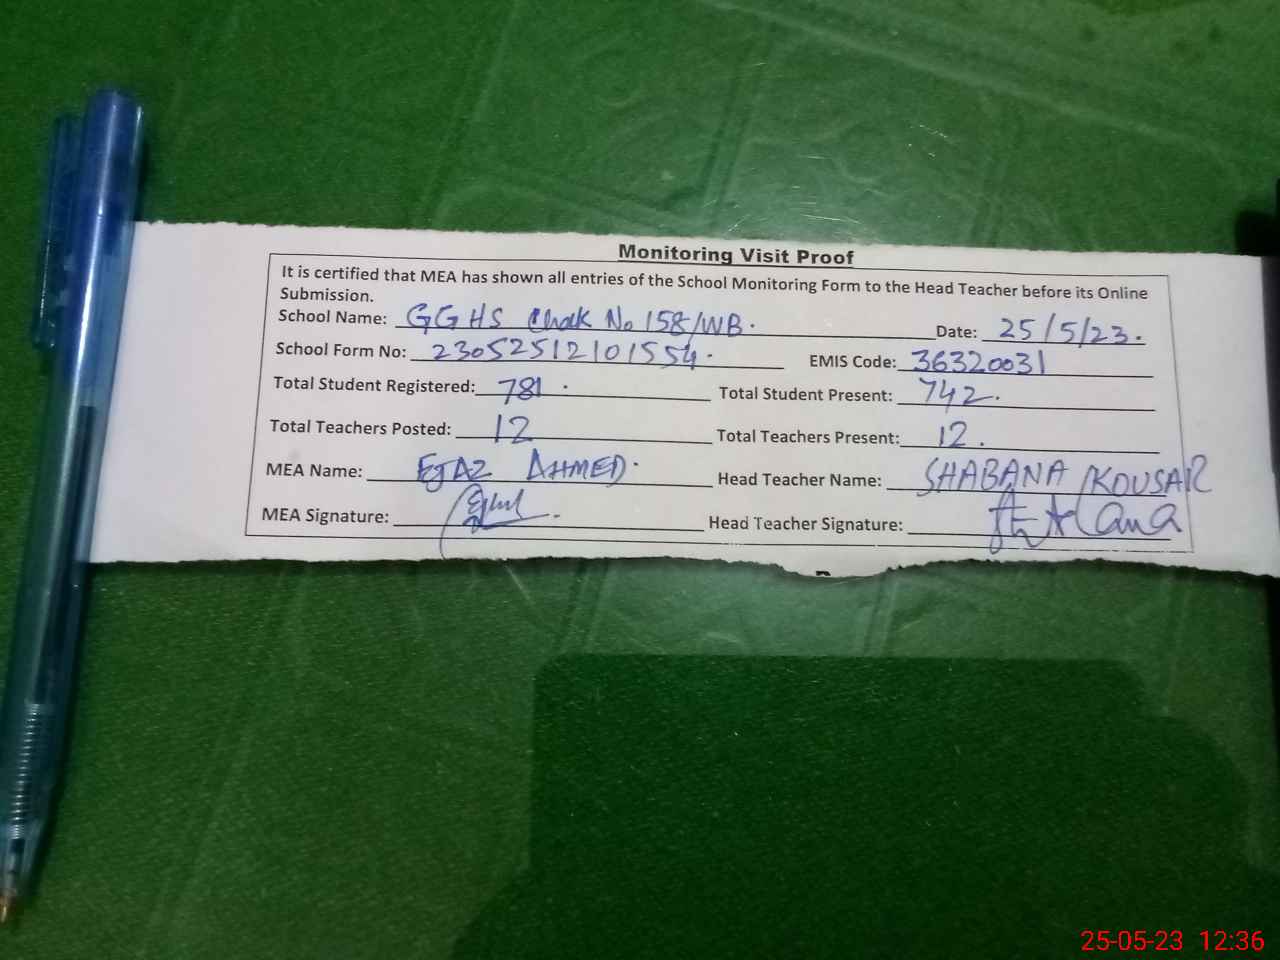 Monitoring Visit Proof
It is certified that MEA has shown all entries of the School Monitoring Form to the Head Teacher before its Online
Submission.
School Name: GGHS Chak No 158/WB. Date: 25/5/23.
School Form No: 23052512101554. EMIS Code: 36320031
Total Student Registered: 781. Total Student Present: 742.
Total Teachers Posted: 12 Total Teachers Present: 12.
MEA Name: EJAZ AHMED. Head Teacher Name: SHABANA KOUSAR
MEA Signature: Head Teacher Signature:
25-05-23 12:36